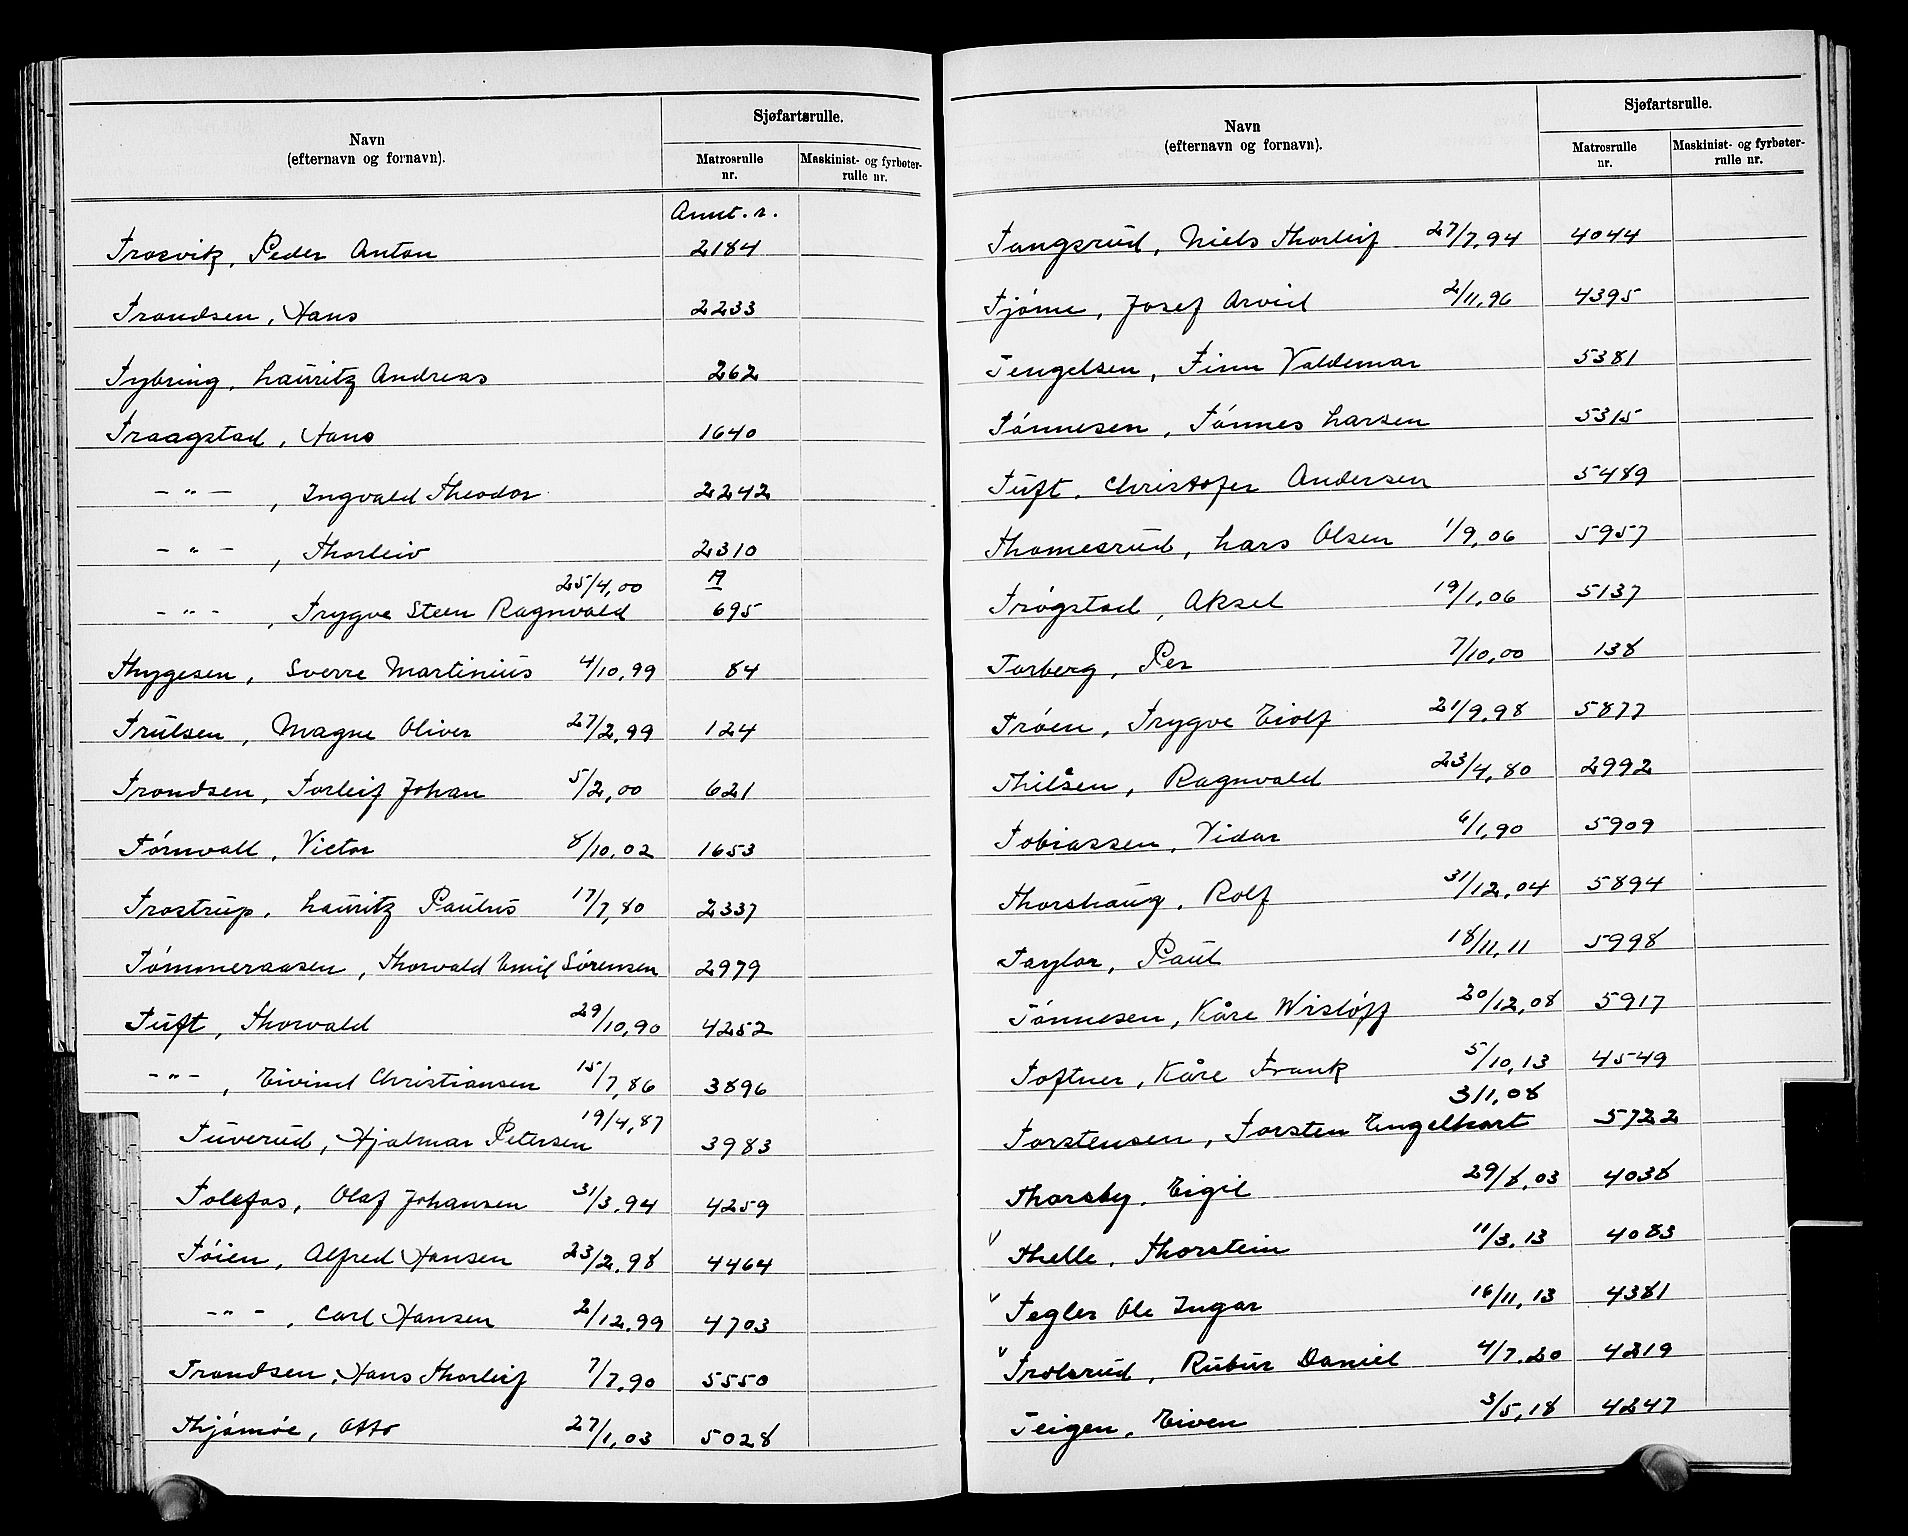 Sjøfartsrulle.
Navn
(efternavn og fornavn).
Matrosrulle
nr.
Maskinist- og fyrbøter-
rulle nr.
Annt. r.
Trosvik, Peder Anton 2184
Trondsen, Hans 2233
Tybring, Lauritz Andreas 262
Traagstad, Hans 1640
- " - , Ingvald Theodor 2242
- " - , Thorleiv 2310
25/4,00 A
- " - , Trygve Steen Ragnvald 695
Thygesen, Sverre Martinius 4/10,99 84
Trulsen, Magne Oliver 27/2,99 124
Trondsen, Torleif Johan 5/2,00 621
Törnvall, Victor 8/10,02 1653
Trostrup, Lauritz Paulus 17/7,80 2337
Tømmeraasen, Thorvald Emil Sørensen 2979
Tuft, Thorvald 29/10,90 4252
- " - , Eivind Christiansen 15/7,86 3896
19/4,87
Tuverud, Hjalmar Petersen 3983
Tolefos, Olaf Johansen 31/3,94 4259
Tøien, Alfred Hansen 23/2,98 4464
- " - , Carl Hansen 2/12,99 4703
Trondsen, Hans Thorleif 7/7,90 5550
Thjømøe, Otto 27/1,03 5028
Sjøfartsrulle.
Navn
(efternavn og fornavn).
Matrosrulle
nr.
Maskinist- og fyrbøter-
rulle nr.
Tangsrud, Niels Thorleif 27/7,94 4044
Tjøme, Josef Arvid 2/11,96 4395
Tengelsen, Finn Valdemar 5381
Tønnesen, Tønnes Larsen 5315
Tuft, Christofer Andersen 5489
Thomesrud, Lars Olsen 1/9,06 5957
Trøgstad, Aksel 19/1,06 5137
Torberg, Per 7/10,00 138
Trøen, Trygve Eiolf 21/9,98 5877
Thilsen, Ragnvald 23/4,80 2992
Tobiassen, Vidar 6/1,90 5909
Thorshaug, Rolf 31/12,04 5894
Taylor, Paul 18/11,11 5998
Tønnesen, Kåre Wisløff 20/12,08 5917
Toftner, Kåre Frank 5/10,13 4549
3/1,08
Torstensen, Torsten Engelhart 5722
Thorsby, Eigil 29/8,03 4038
v Thelle, Thorstein 11/3,13 4083
v Tegler Ole Ingar 16/11,13 4381
v Trolsrud, Rubur Daniel 4/7.20 4219
Teigen, Eiven 3/5,18 4247